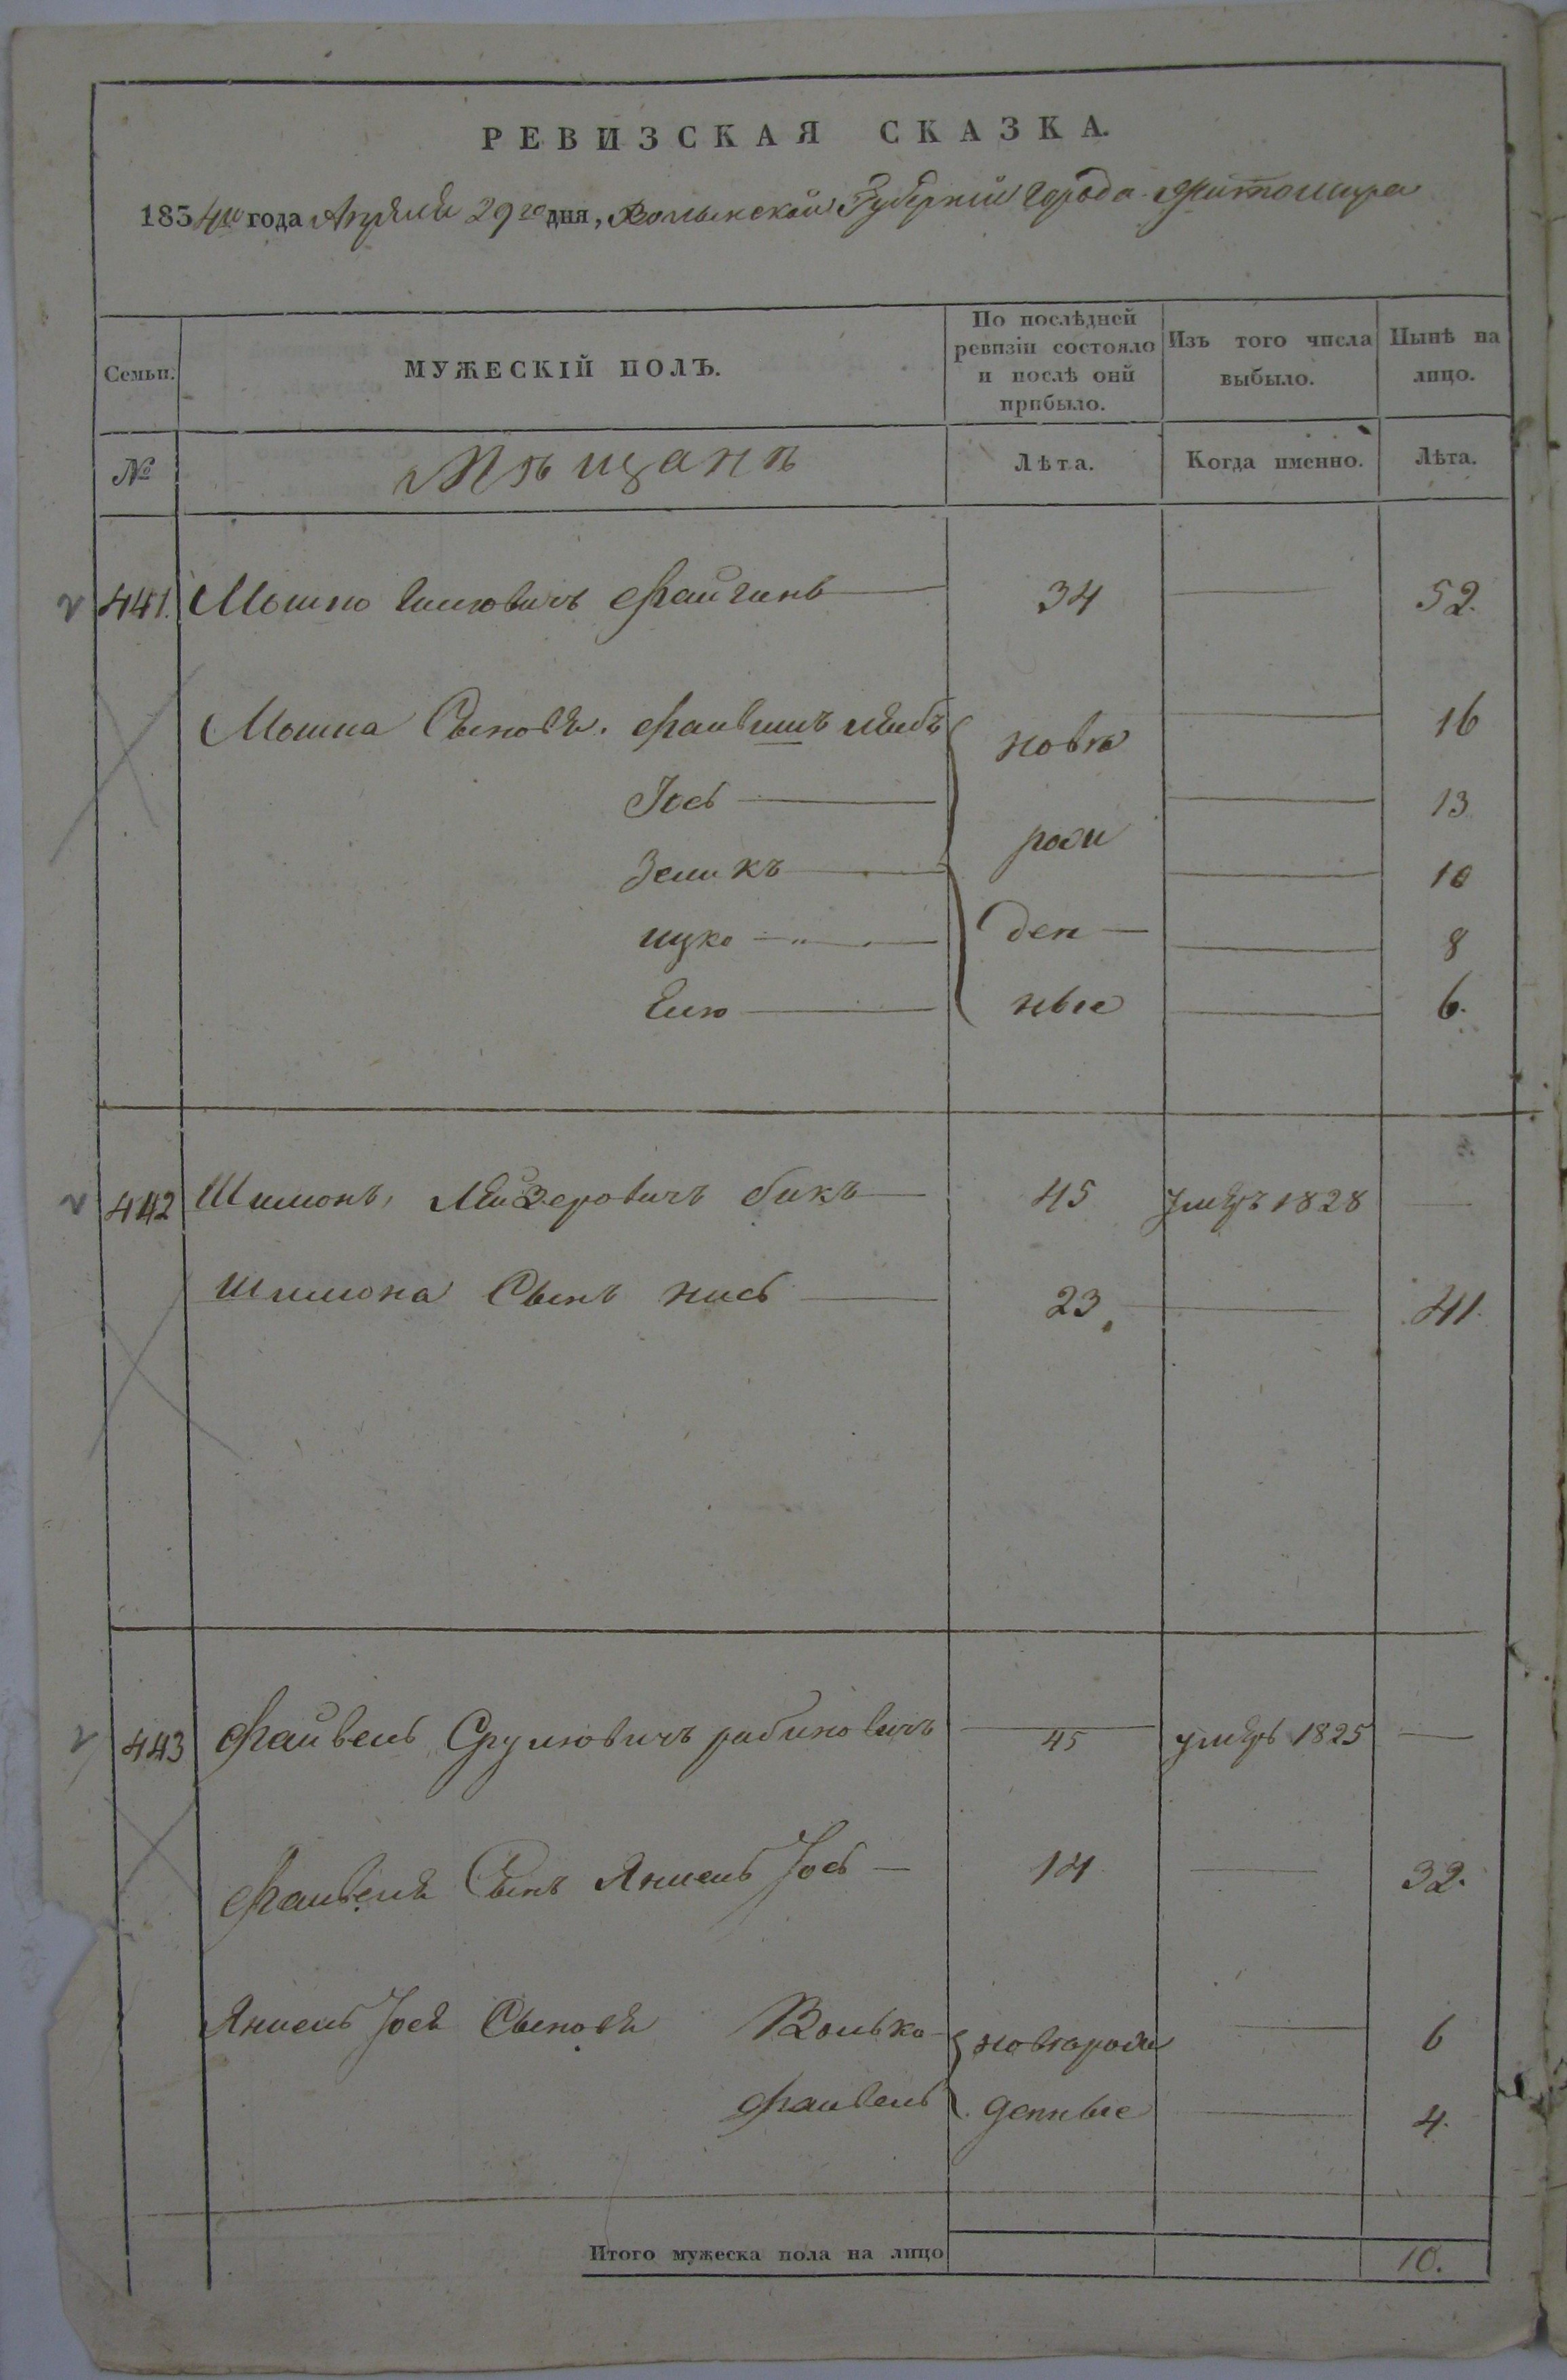 РЕВИЗСКАЯ СКАЗКА.
1834го года Апреля 29го дня, Волынской Губернии города Житомира
Семьи. МУЖЕСКІЙ ПОЛЪ. По послѣдней ревизіи состояло и послѣ оній прибыло. Изъ того числа выбыло. Нынѣ на лицо.
№ Мѣщанъ Лѣта. Когда именно. Лѣта.
441. Мошко Файгинъ 34 52.
Мошка Сыновя. Файвишъ лейбъ 16
Іось 13
Зеликъ 10
ицко 8
Елю 6.
ново
рож
ден
ные
442 Шимонъ, Лейзеровичъ бикъ 45 умеръ 1828
Шимона Сынъ нись 23 41.
443 Файвель Срулювичъ рабиновичъ 45 умеръ 1825
Файвеля Сынъ Янкель Іось 14 32.
Янкель Іося Сыновя Волько новорож 6
Файвель денные 4.
Итого мужеска пола на лицо 10.